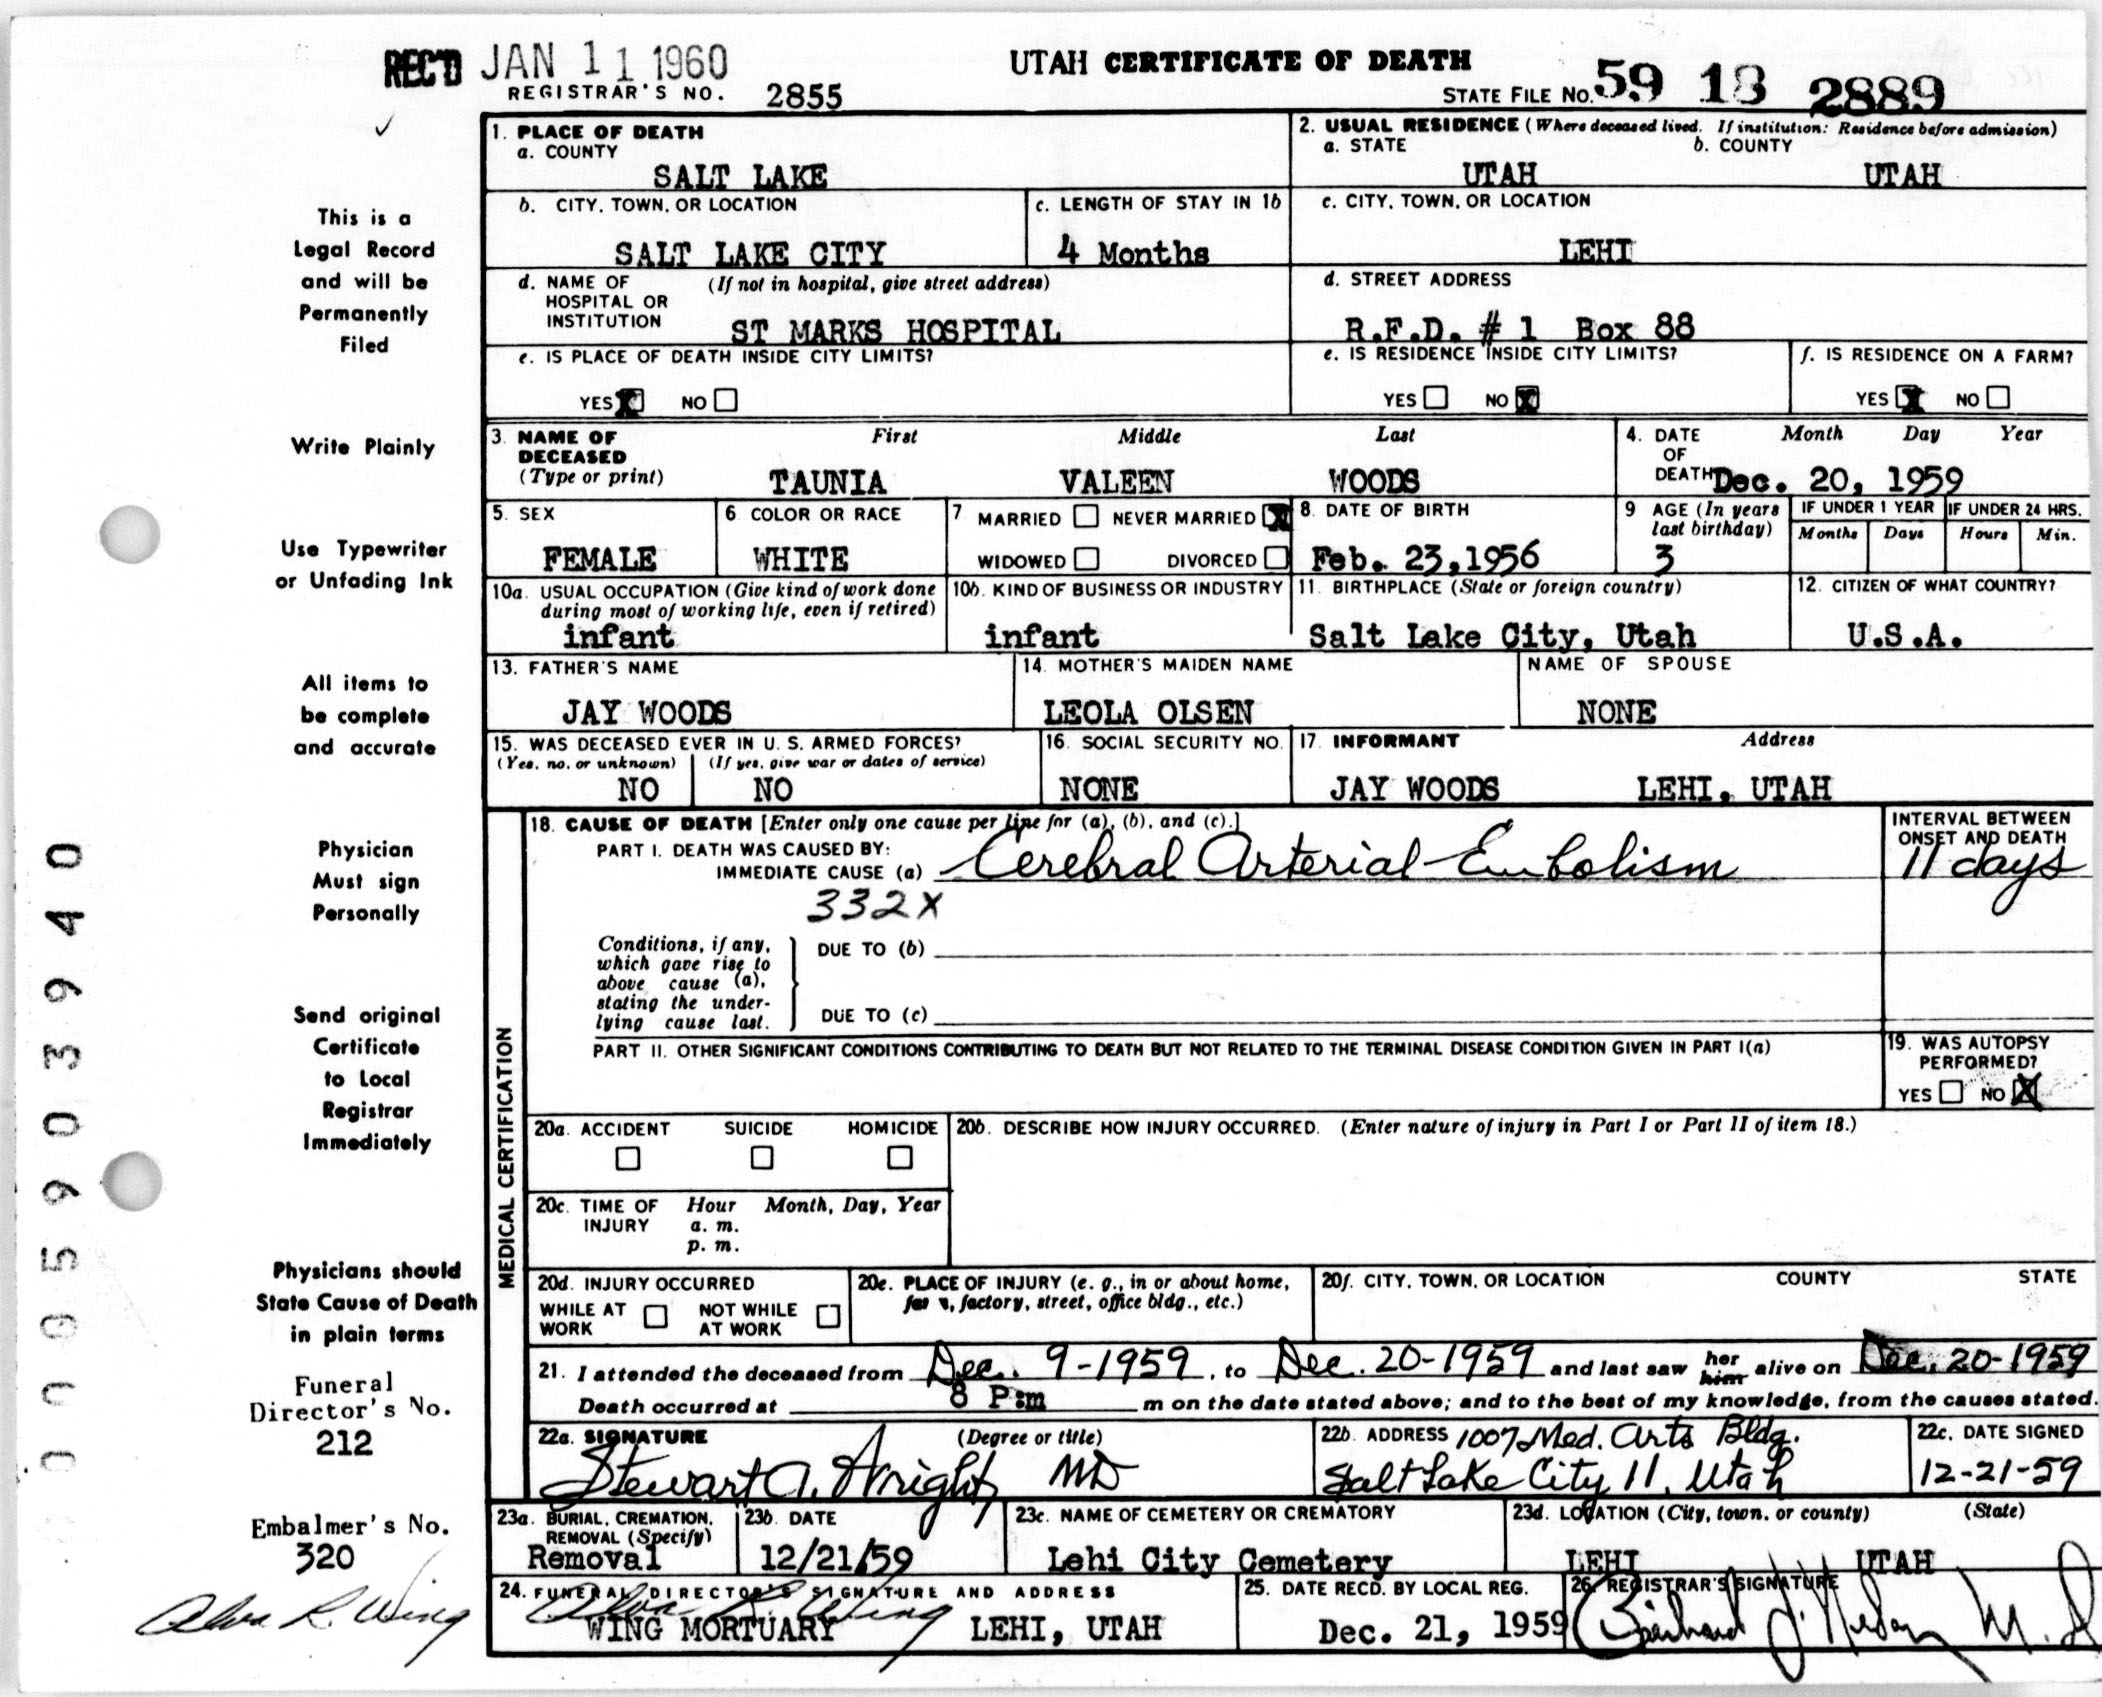 REC'D JAN 11 1960
UTAH CERTIFICATE OF DEATH
REGISTRAR'S NO. 2855
STATE FILE NO. 59 18 2889
1. PLACE OF DEATH
a. COUNTY
SALT LAKE
2. USUAL RESIDENCE (Where deceased lived. If institution: Residence before admission)
a. STATE b. COUNTY
UTAH UTAH
b. CITY, TOWN, OR LOCATION
SALT LAKE CITY
c. LENGTH OF STAY IN 1b
4 Months
c. CITY, TOWN, OR LOCATION
LEHI
d. NAME OF (If not in hospital, give street address)
HOSPITAL OR
INSTITUTION ST MARKS HOSPITAL
d. STREET ADDRESS
R.F.D. # 1 Box 88
e. IS PLACE OF DEATH INSIDE CITY LIMITS?
YES X NO
e. IS RESIDENCE INSIDE CITY LIMITS?
YES NO X
f. IS RESIDENCE ON A FARM?
YES X NO
3. NAME OF First Middle Last
DECEASED
(Type or print) TAUNIA VALEEN WOODS
4. DATE Month Day Year
OF
DEATH Dec. 20, 1959
5. SEX
FEMALE
6. COLOR OR RACE
WHITE
7 MARRIED NEVER MARRIED X
WIDOWED DIVORCED
8. DATE OF BIRTH
Feb. 23,1956
9 AGE (In years
last birthday)
3
IF UNDER 1 YEAR IF UNDER 24 HRS.
Months Days Hours Min.
10a. USUAL OCCUPATION (Give kind of work done
during most of working life, even if retired)
infant
10b. KIND OF BUSINESS OR INDUSTRY
infant
11. BIRTHPLACE (State or foreign country)
Salt Lake City, Utah
12. CITIZEN OF WHAT COUNTRY?
U.S.A.
13. FATHER'S NAME
JAY WOODS
14. MOTHER'S MAIDEN NAME
LEOLA OLSEN
NAME OF SPOUSE
NONE
15. WAS DECEASED EVER IN U. S. ARMED FORCES?
(Yes, no, or unknown) (If yes, give war or dates of service)
NO NO
16. SOCIAL SECURITY NO.
NONE
17. INFORMANT Address
JAY WOODS LEHI, UTAH
MEDICAL CERTIFICATION
18. CAUSE OF DEATH [Enter only one cause per line for (a), (b), and (c).]
PART I. DEATH WAS CAUSED BY:
IMMEDIATE CAUSE (a) Cerebral Arterial Embolism
INTERVAL BETWEEN
ONSET AND DEATH
11 days
332X
Conditions, if any,
which gave rise to
above cause (a),
stating the under-
lying cause last.
DUE TO (b)
DUE TO (c)
PART II. OTHER SIGNIFICANT CONDITIONS CONTRIBUTING TO DEATH BUT NOT RELATED TO THE TERMINAL DISEASE CONDITION GIVEN IN PART I(a)
19. WAS AUTOPSY
PERFORMED?
YES NO X
20a. ACCIDENT SUICIDE HOMICIDE
20b. DESCRIBE HOW INJURY OCCURRED. (Enter nature of injury in Part I or Part II of item 18.)
20c. TIME OF Hour Month, Day, Year
INJURY a. m.
p. m.
20d. INJURY OCCURRED
WHILE AT NOT WHILE
WORK AT WORK
20e. PLACE OF INJURY (e. g., in or about home,
factory, street, office bldg., etc.)
20f. CITY, TOWN, OR LOCATION COUNTY STATE
21. I attended the deceased from Dec. 9-1959, to Dec. 20-1959 and last saw her him alive on Dec. 20-1959
Death occurred at 8 P:m m on the date stated above; and to the best of my knowledge, from the causes stated.
22a. SIGNATURE (Degree or title)
Stewart A. Wright MD
22b. ADDRESS 1007 Med. Arts Bldg.
Salt Lake City 11, Utah
22c. DATE SIGNED
12-21-59
23a. BURIAL, CREMATION,
REMOVAL (Specify)
Removal
23b. DATE
12/21/59
23c. NAME OF CEMETERY OR CREMATORY
Lehi City Cemetery
23d. LOCATION (City, town, or county) (State)
LEHI UTAH
24. FUNERAL DIRECTOR'S SIGNATURE AND ADDRESS
Alva R. Wing
WING MORTUARY LEHI, UTAH
25. DATE RECD. BY LOCAL REG.
Dec. 21, 1959
26. REGISTRAR'S SIGNATURE
M.D.
This is a
Legal Record
and will be
Permanently
Filed
Write Plainly
Use Typewriter
or Unfading Ink
All items to
be complete
and accurate
Physician
Must sign
Personally
Send original
Certificate
to Local
Registrar
Immediately
Physicians should
State Cause of Death
in plain terms
Funeral
Director's No.
212
Embalmer's No.
320
Alva R. Wing
005903940